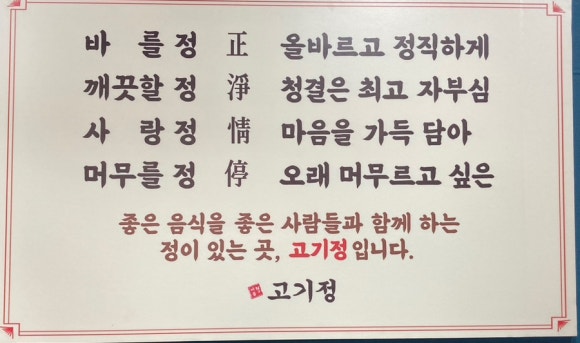 바 를 정 正 올바르고 정직하게
깨끗할 정 淨 청결은 최고 자부심
사 랑 정 情 마음을 가득 담아
머무를 정 停 오래 머무르고 싶은
좋은 음식을 좋은 사람들과 함께 하는
정이 있는 곳, 고기정입니다.
고기정